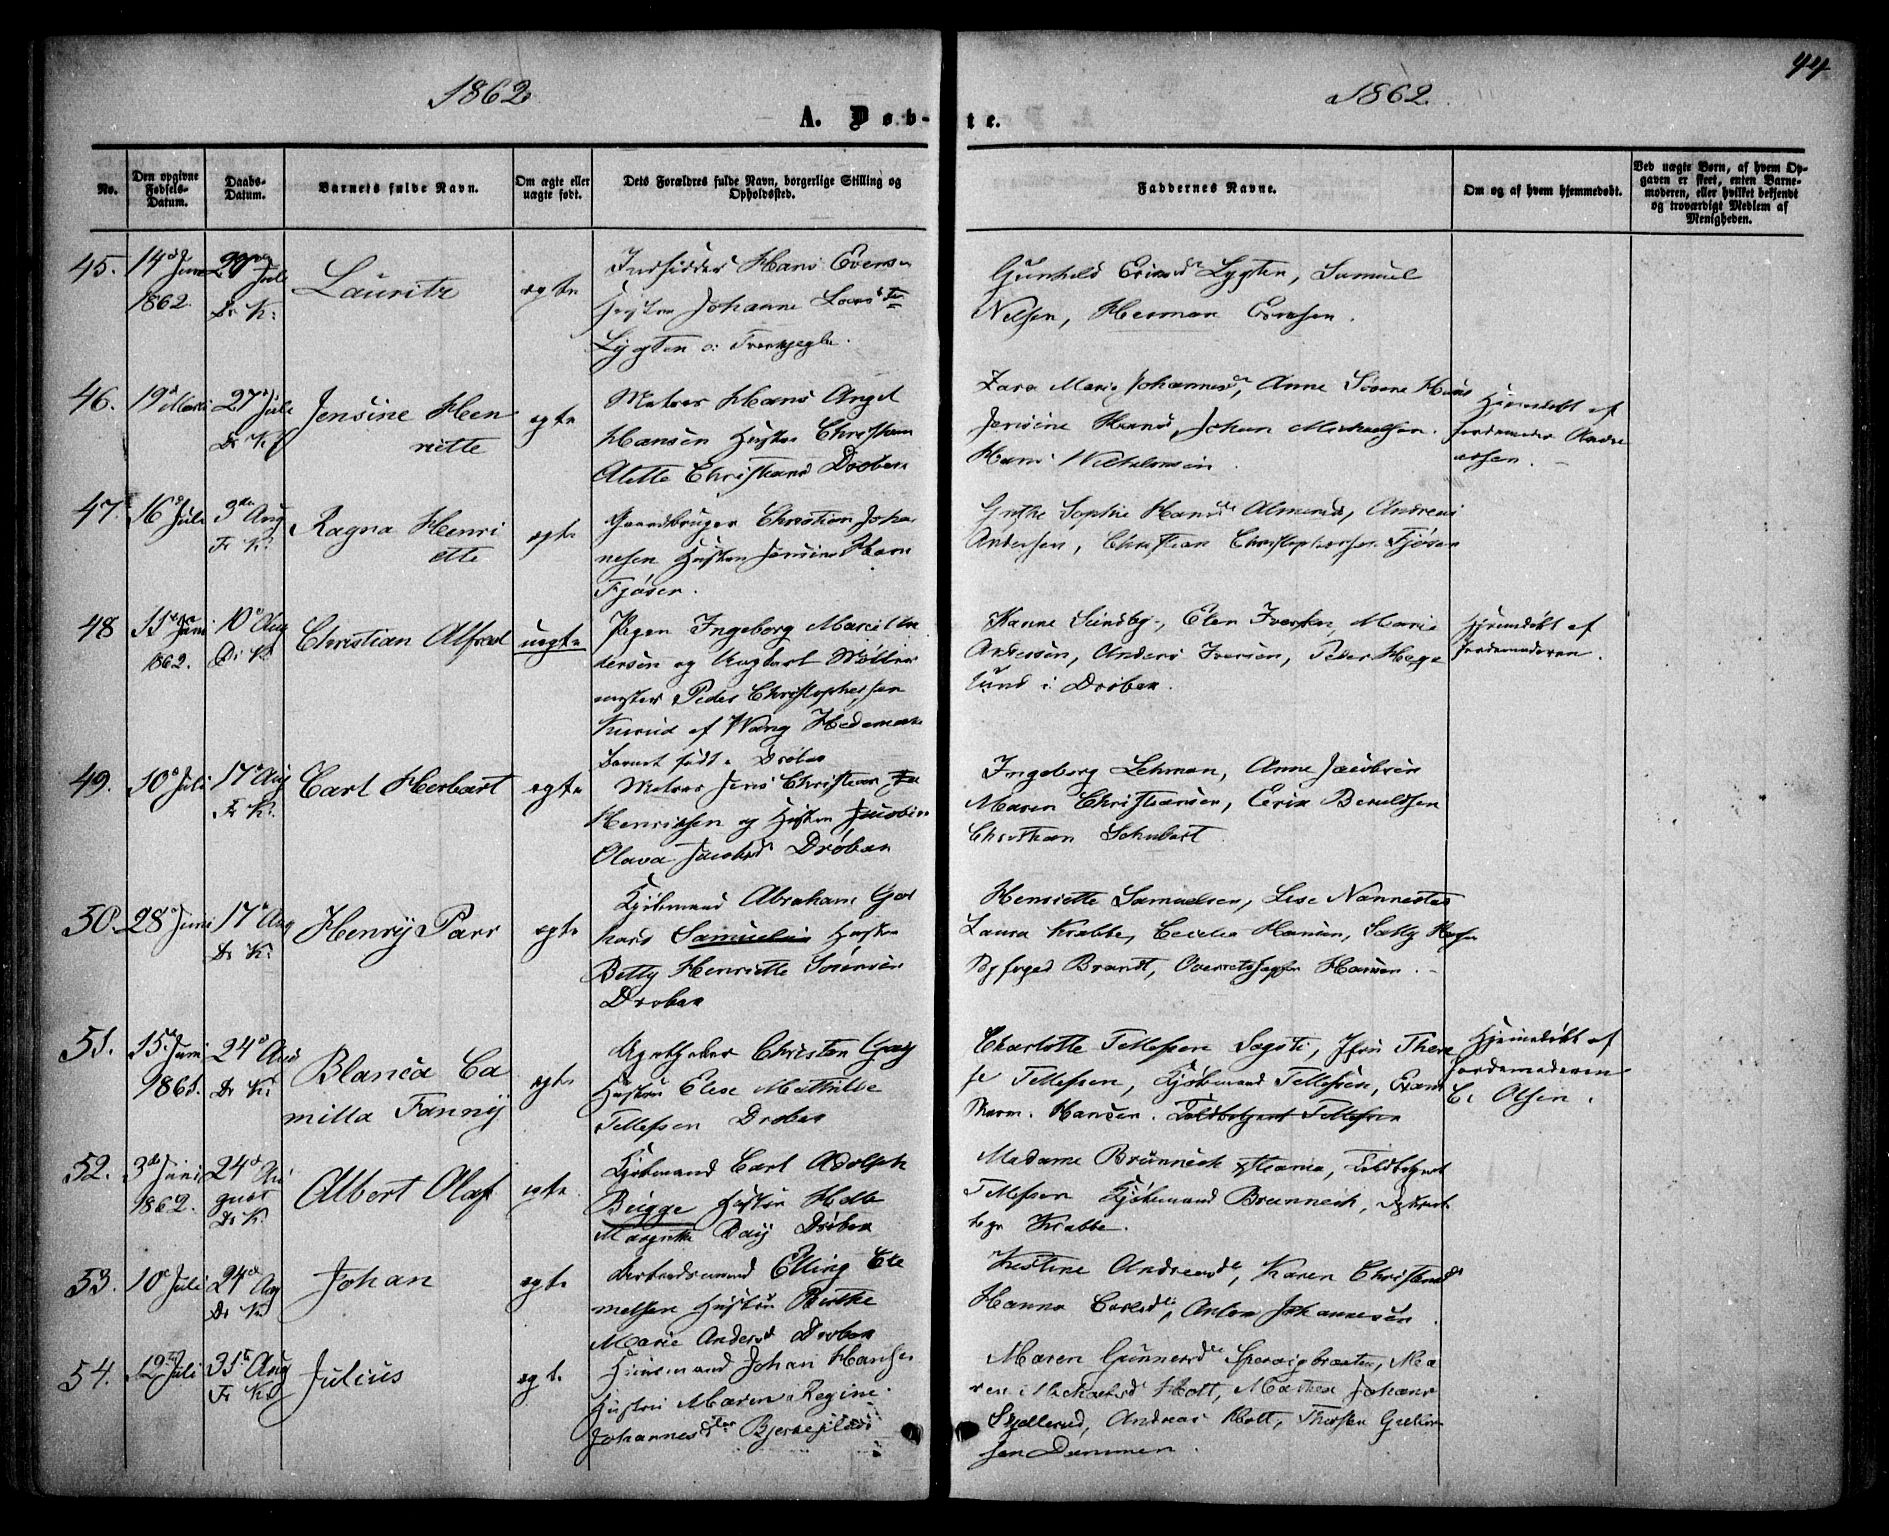 44
1862 1862.
A. Døb- te.
No.
Den opgivne Fødsels-Datum.
Daabs-Datum.
Barnets fulde Navn.
Om ægte eller uægte født.
Dets Forældres fulde Navn, borgerlige Stilling og Opholdssted.
Faddernes Navne.
Om og af hvem hjemmedøbt.
Ved uægte Børn, af hvem Opgaven er skeet, enten Barnemoderen, eller hvilket bekjendt og troværdigt Medlem af Menigheden.
45. 14d Juni 1862 27 Juli Dr K:
Lauritz
ægte
Hans Evensen
Hustru Johanne Larsdtr
Lygten
Gunhild Lygten, Samuel
Nilsen, Herman Evensen.
46. 19d Marts 27d Juli Dr K
Jensine Hen
riette
ægte
Matros Hans Angel
Hansen Hustru Christiane
Alette Christiansd Drøbak
Marie Johannesd, Anne Hans
Jensine Hansd, Johan Michaelsen.
Hans
Hjemdøbt af
Jordemoder Andre
assen.
47. 16d Juli 3de Aug Fr K:
Ragna Henri
ette
ægte
Gaardbruger Christian Joha
nesen Hustru Jensine Hans
Fjøser.
Grethe Sophie Hansd Almerud, Andreas
Andersen, Christian Christophersen Fjøser
48 11te Juni 1862. 10d Aug Dr K
Christian Alfred
uægte
Pigen Ingeborg Marie An
dersen og Ungkarl Møller
mester Peder Christophersen
Kurud af Wang Hedemark
Barnet født i Drøbak
Hanne Sundby, Elen Iversen, Marie
Andersen, Anders Iversen, Peder Hege
lund i Drøbak.
Hjemdøbt af
Jordemoderen.
49. 10d Juli 17d Aug Dr K:
Carl Herbart
ægte
Matros Jens Christian
Henriksen og Hustru Jacobine
Olava Jacobsd Drøbak
Ingeborg Lehman, Anne Jacobsen
Maren Christiansen, Beruldsen
Christian Schubert
50. 28d Juni 17d Aug Dr K:
Henry Parr
ægte
Kjøbmand Abraham Ger
hard Samuelsen Hustru
Betty Henriette Sørensen
Drøbak
Henriette Samuelsen, Lise Nannestad
Laura Krabbe, Cecilia Hansen,
Byfoged Brandt, Overretssagfør Hansen.
51. 15de Juni 1861. 24d Aug Dr K:
Blanca Ca
milla Fanny
ægte
Apotheker Christen
Hustru Elise Mathilde
Tellefsen Drøbak
Charlotte Tellefsen Fru There
se Tellefsen, Kjøbmand Tellefsen, Exam
Pharm. Hansen. Toldbetjent Tellefsen
Hjemmedøbt af
Jordemoderen
C. Olsen.
52. 3de Juni 1862. 24d Au gust Dr K:
Albert Olaf
ægte
Kjøbmand Carl Adolph
Bugge Hustru Helle
Margrethe Drøbak
Madame Brünnech Toldbetjent
Tellefsen Kjøbmand Brünnech,
Krabbe.
53. 10d Juli 24d Aug Dr K
Johan
ægte
Arbeidsmand Elling Cle
metsen Hustru Berthe
Marie Andersd Drøbak
Kistine Andreasd, Karen Christensd
Hanna Carlsd, Anton Johannesen.
54. 12te Juli 31te Aug Fr K
Julius
ægte
Huusmand Johan Hansen
Hustru Maren Regine
Johannesdtr
Maren Gunnersd Ma
ren Michaelsd Hott, Mathea Johans
Skjellerud, Andreas Hott,
sen Dammen.